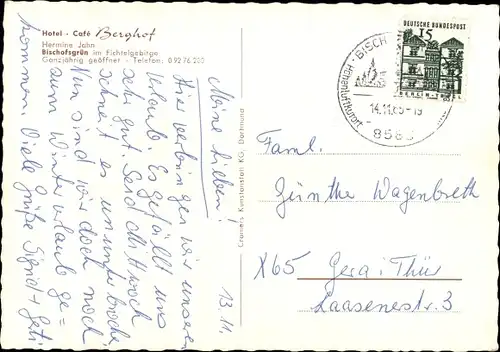 Hotel - Café Berghof
Hermine Jahn
Bischofsgrün im Fichtelgebirge
Ganzjährig geöffnet - Telefon: 0 92 76
13.11.
Meine Lieben!
Hier verbringen wir unseren
Urlaub. Es gefällt uns
sehr gut. Seit Mittwoch
schneit es ununterbrochen
Nun sind wir doch noch
zum Winterurlaub ge=
kommen. Viele Grüße
Cramers Kunstanstalt KG. Dortmund
DEUTSCHE BUNDESPOST
15
BERLIN
BISCH
Höhenluftkurort
14.11.65-19
8583
Faml.
Günthe Wagenbreth
X65 Gera i Thür
Laasenestr. 3